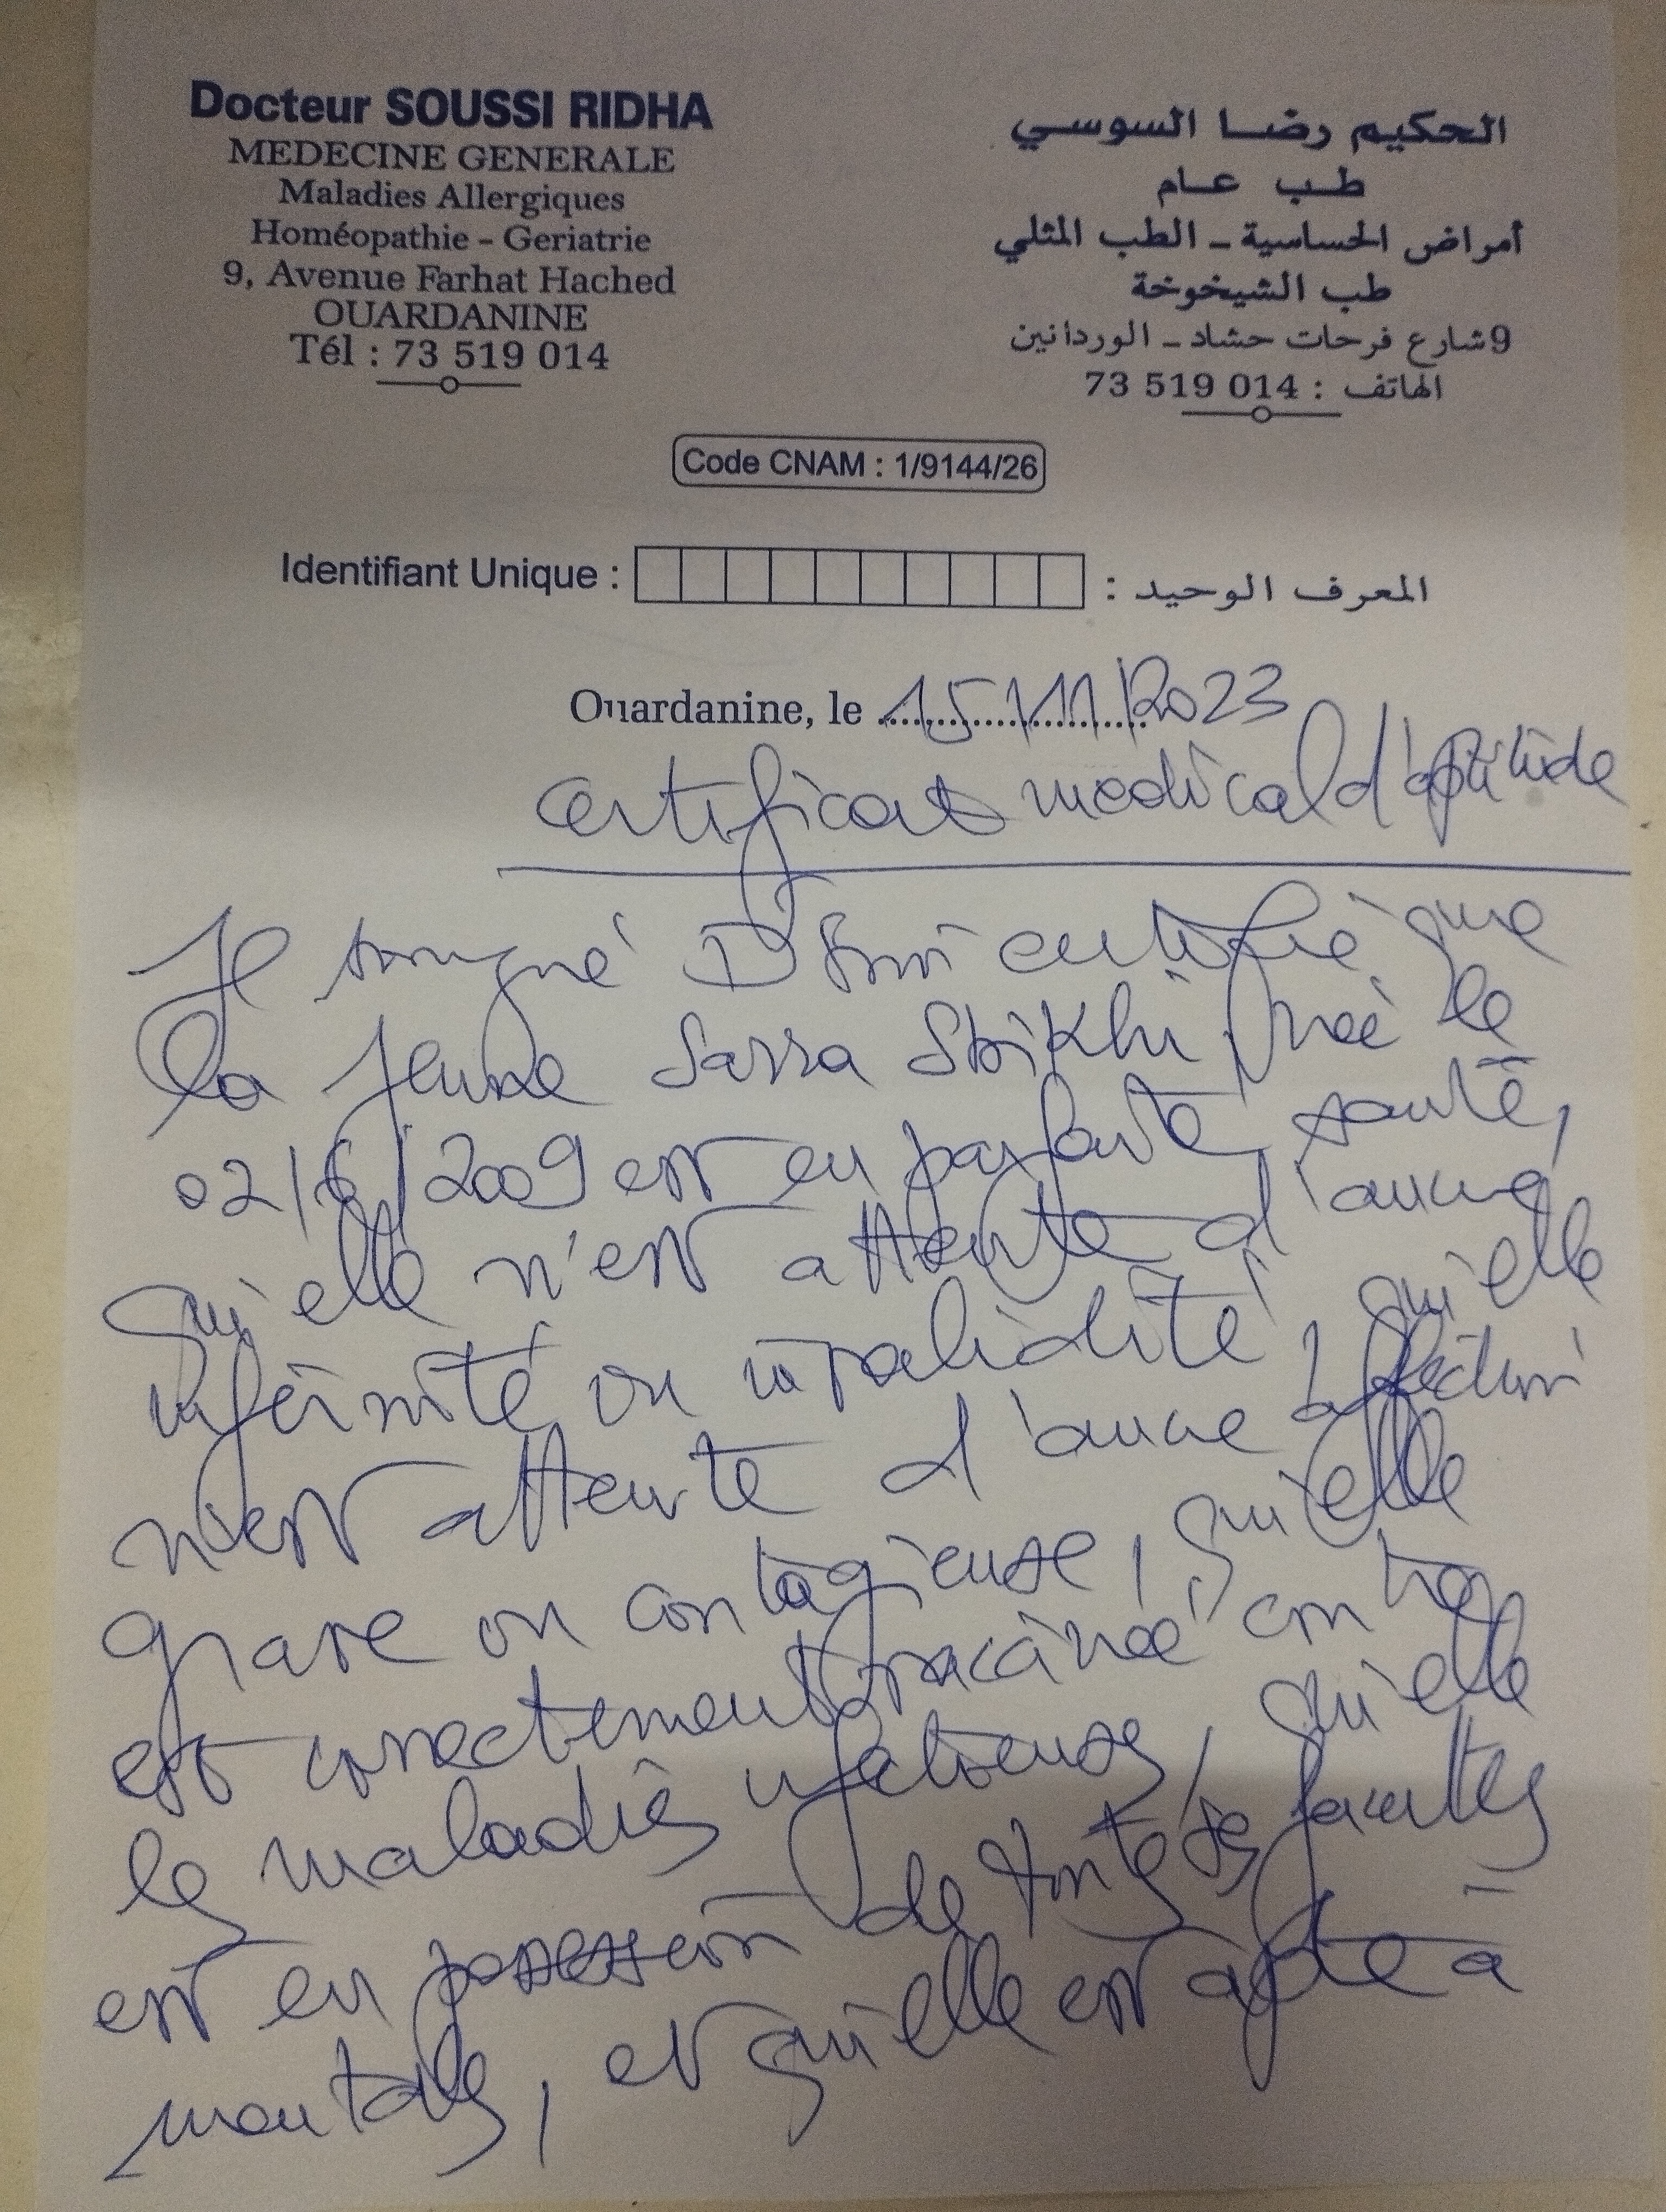 Docteur SOUSSI RIDHA
MEDECINE GENERALE
Maladies Allergiques
Homéopathie - Geriatrie
9, Avenue Farhat Hached
OUARDANINE
Tél : 73 519 014
الحكيم رضا السوسي
طب عام
أمراض الحساسية - الطب المثلي
طب الشيخوخة
9 شارع فرحات حشاد - الوردانين
الهاتف : 73 519 014
Code CNAM : 1/9144/26
Identifiant Unique : المعرف الوحيد :
Ouardanine, le 15/11/2023
certificat medical d'aptitude
Je soussigné Dr Soussi certifie que
la jeune Sarra Sbikhi née le
02/6/2009 est en parfaite santé,
qu'elle n'est atteinte d'aucune
infirmité ou invalidité, qu'elle
n'est atteinte d'aucune affection
grave ou contagieuse, qu'elle
est correctement vaccinée contre
les maladies infectieuses, qu'elle
est en possession de toutes ses facultés
mentales, et qu'elle est apte à